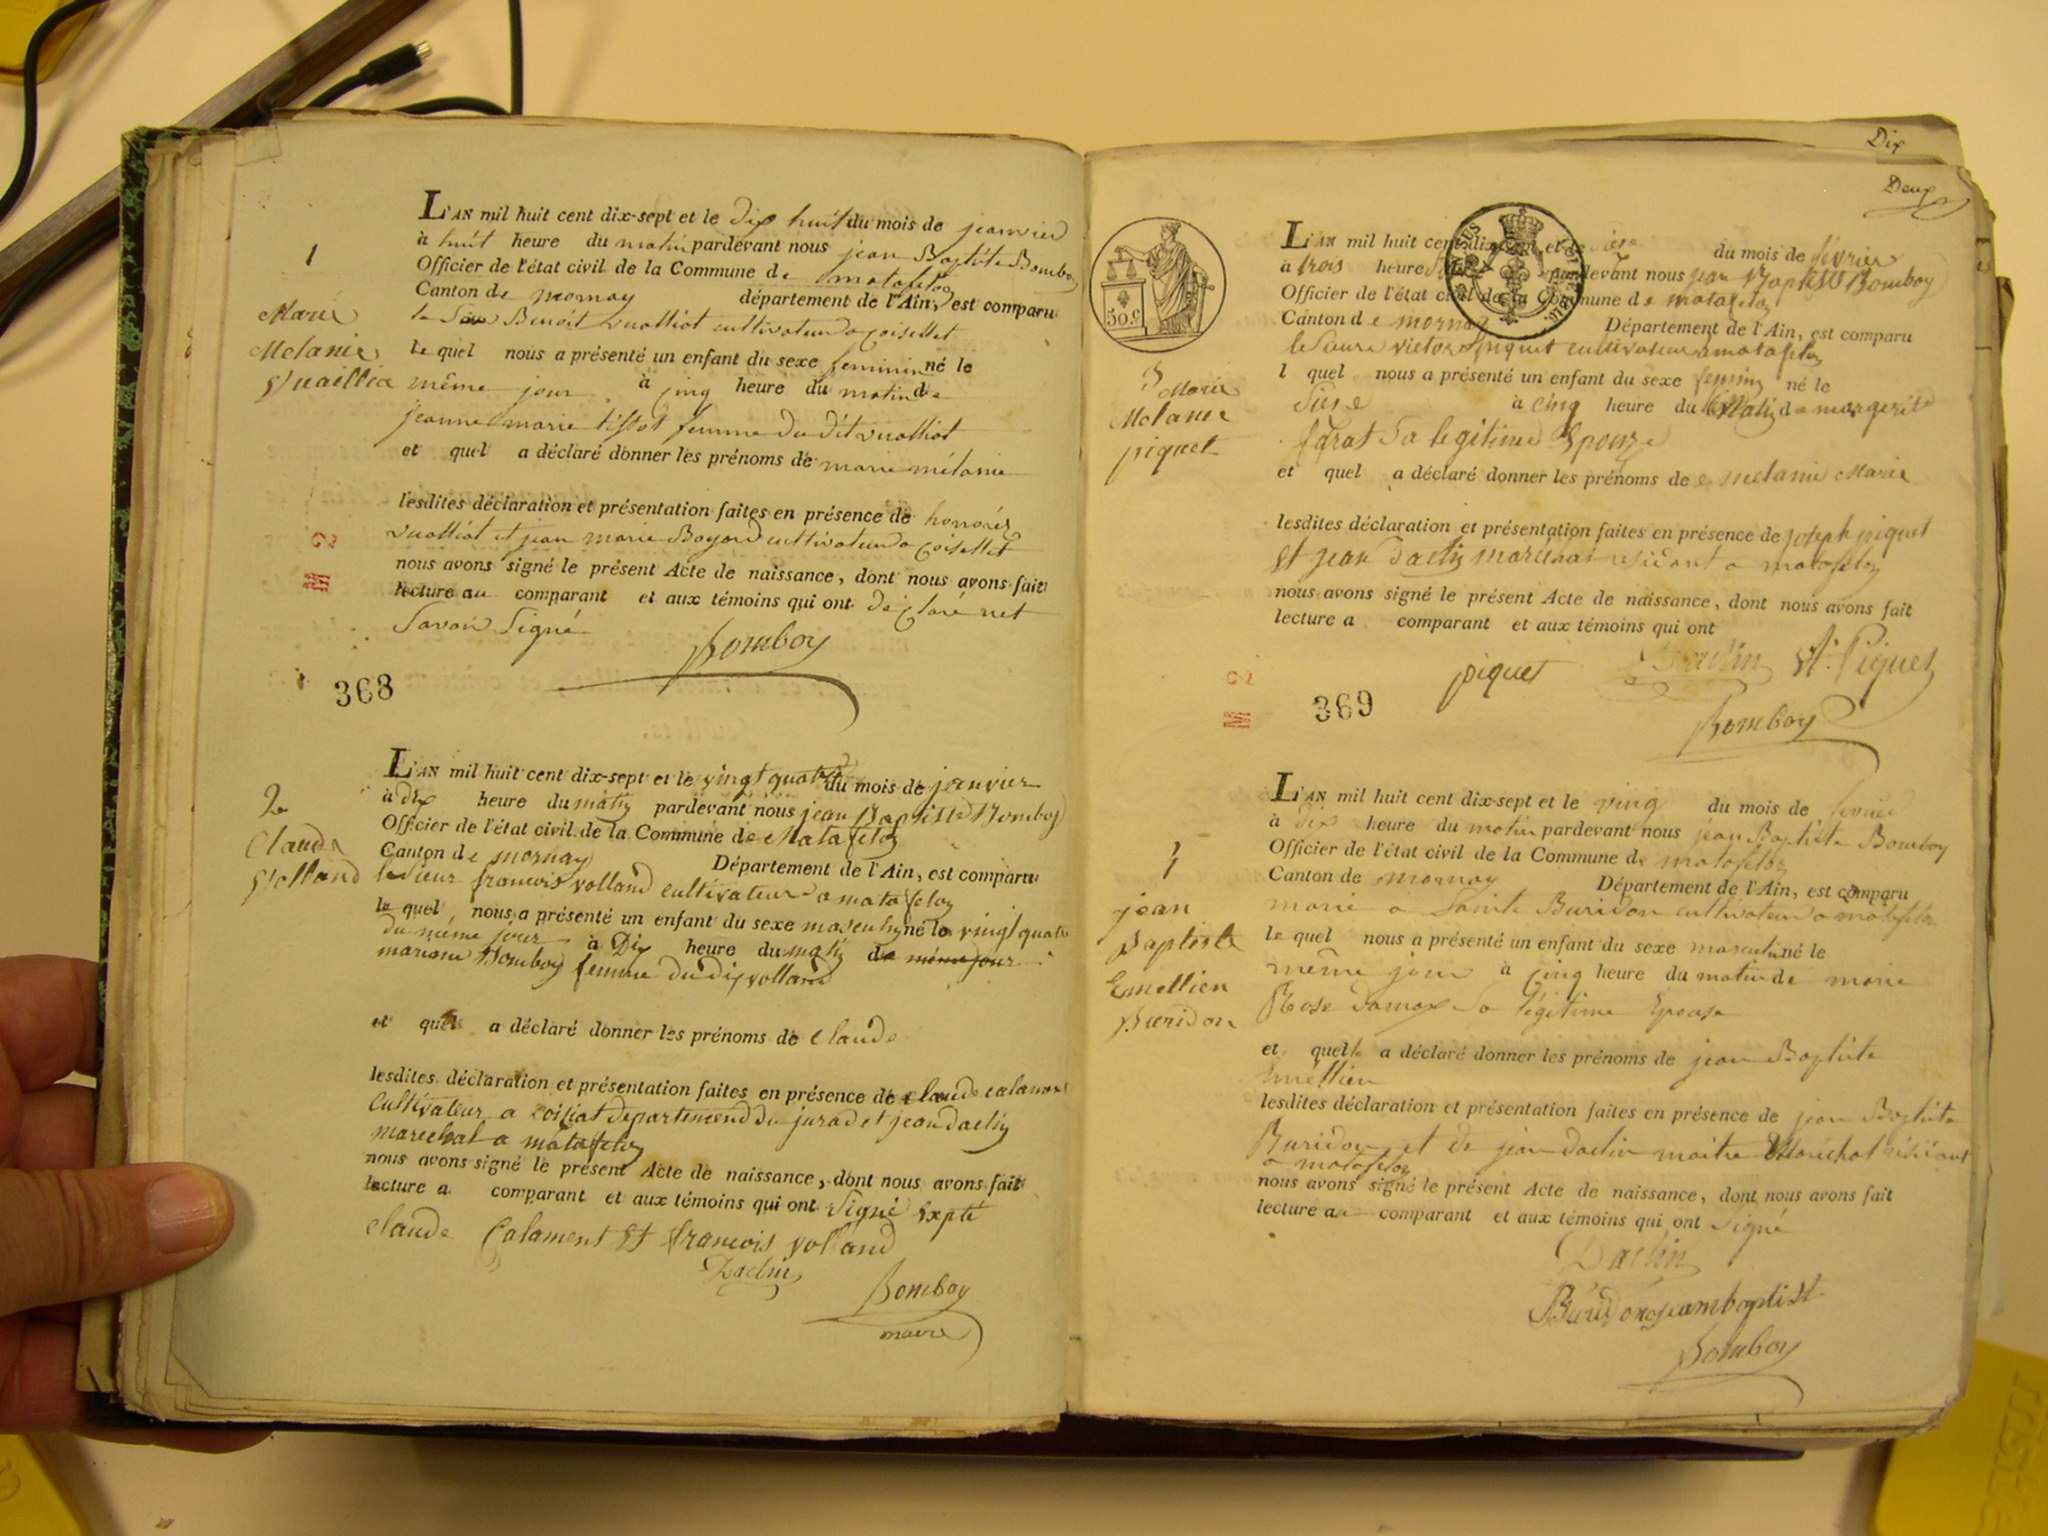 1
Marie
Melanie
Vuaillia
L'AN mil huit cent dix-sept et le dix huit du mois de janvier
à huit heure du matin pardevant nous jean Baptiste Bomboy
Officier de l'état civil de la Commune de matafelon
Canton de mornay département de l'Ain, est comparu
le Benoit vualliat cultivateur a Coisellet
le quel nous a présenté un enfant du sexe feminin né le
même jour à cinq heure du matin de
jeanne marie tissot femme du dit vualliat
et quel a déclaré donner les prénoms de marie mélanie
lesdites déclaration et présentation faites en présence de honnoré
vualliat et jean marie Boyard cultivateur a Coisellet
nous avons signé le présent Acte de naissance, dont nous avons fait
lecture au comparant et aux témoins qui ont déclaré net
Savoir Signé
Bomboy
368
2
Claude
Volland
L'AN mil huit cent dix-sept et le vingt quatre du mois de janvier
à dix heure du matin pardevant nous jean Baptiste Bomboy
Officier de l'état civil de la Commune de Matafelon
Canton de mornay Département de l'Ain, est comparu
le Sieur francois volland cultivateur a matafelon
le quel nous a présenté un enfant du sexe masculin né le vingt quatre
du même jour à Dix heure du matin de même jour
mariane Bomboy femme du dit volland
et quel a déclaré donner les prénoms de Claude
lesdites déclaration et présentation faites en présence de Claude calament
cultivateur a coisiat departemend du jurad et jean daclin
marechal a matafelon
nous avons signé le présent Acte de naissance, dont nous avons fait
lecture a comparant et aux témoins qui ont Signé
Claude Calament et francois volland
Daclin
Bomboy
maire
Dix
Deux
50 c.
3
Marie
Melanie
piquet
L'AN mil huit cent dix-sept et le du mois de février
à trois heure pardevant nous jean Baptiste Bomboy
Officier de l'état civil de la Commune de matafelon
Canton de mornay Département de l'Ain, est comparu
le victor piquet cultivateur a matafelon
l quel nous a présenté un enfant du sexe feminin né le
à cinq heure du matin de margerite
Sa legitime Epouze
et quel a déclaré donner les prénoms de melanie Marie
lesdites déclaration et présentation faites en présence de joseph piquet
et jean daclin marechal residant a matafelon
nous avons signé le présent Acte de naissance, dont nous avons fait
lecture a comparant et aux témoins qui ont
piquet Daclin Vr. Piquet
Bomboy
369
4
jean
Baptiste
Emellien
Buridon
L'AN mil huit cent dix-sept et le ving du mois de fevrier
à dix heure du matin pardevant nous jean Baptiste Bomboy
Officier de l'état civil de la Commune de matafelon
Canton de mornay Département de l'Ain, est comparu
marie a Sainte Buridon cultivateur a matafelon
le quel nous a présenté un enfant du sexe masculin né le
même jour à cinq heure du matin de marie
Rose damas Sa légitime Epouse
et quelle a déclaré donner les prénoms de jean Baptiste
Emellien
lesdites déclaration et présentation faites en présence de jean Baptiste
Buridon et de jean daclin maitre Maréchal résidant
a matafelon
nous avons signé le présent Acte de naissance, dont nous avons fait
lecture au comparant et aux témoins qui ont Signé
Daclin
Buridon jeambaptist
Bomboy